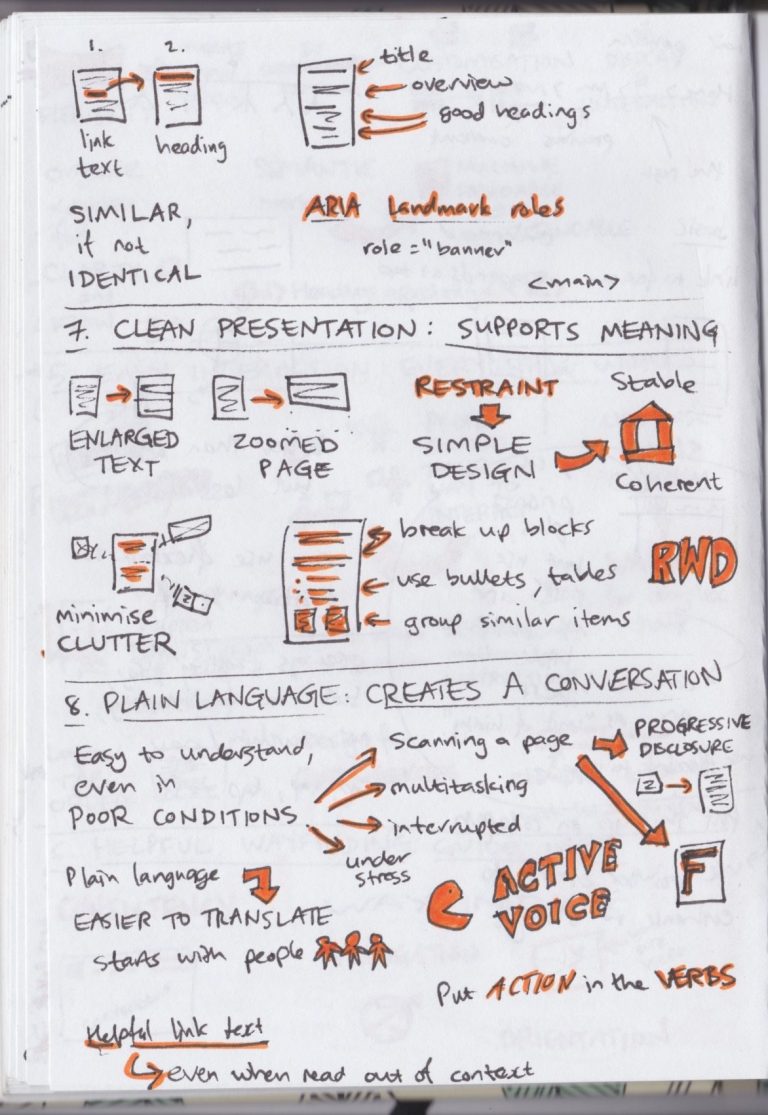 1. 2.
link
text
heading
title
overview
good headings
SIMILAR,
if not
IDENTICAL
ARIA Landmark roles
role="banner"
<main>
7. CLEAN PRESENTATION: SUPPORTS MEANING
ENLARGED
TEXT
ZOOMED
PAGE
RESTRAINT
SIMPLE
DESIGN
Stable
Coherent
minimise
CLUTTER
break up blocks
use bullets, tables
group similar items
RWD
8. PLAIN LANGUAGE: CREATES A CONVERSATION
Easy to understand,
even in
POOR CONDITIONS
Scanning a page
multitasking
interrupted
under
stress
PROGRESSIVE
DISCLOSURE
F
Plain language
EASIER TO TRANSLATE
starts with people
ACTIVE
VOICE
Put ACTION in the VERBS
Helpful link text
even when read out of context